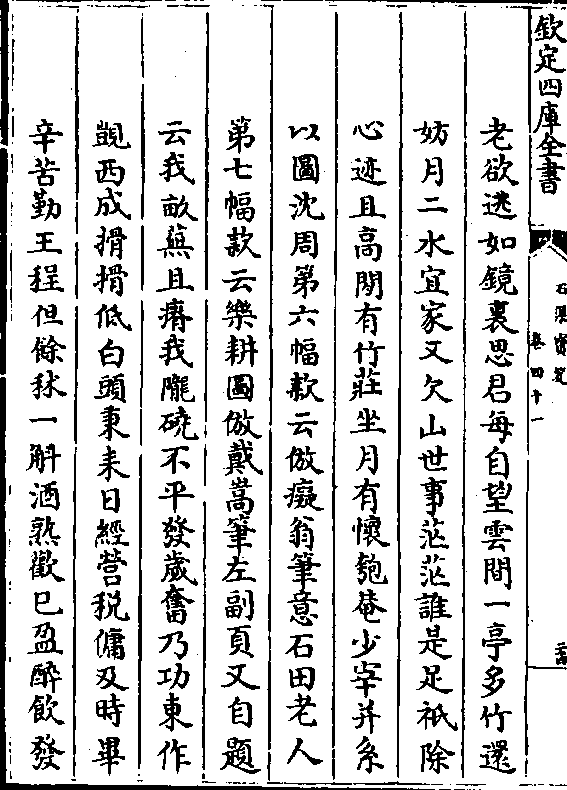 欽定四庫全書
石渠寶笈
卷四十一
老欲逃如鏡裏思君每自望雲間一亭多竹還
妨月二水宜家又欠山世事茫茫誰是足祇除
心迹且高閒有竹莊坐月有懷匏菴少宰并系
以圖沈周第六幅款云倣癡翁筆意石田老人
第七幅款云樂耕圖倣戴嵩筆左副頁又自題
云我畝蕪且瘠我隴磽不平發歲奮乃功東作
覬西成搰搰低白頭秉耒日經營税傭及時畢
辛苦勤王程但餘秫一斛酒熟歡已盈醉飲發